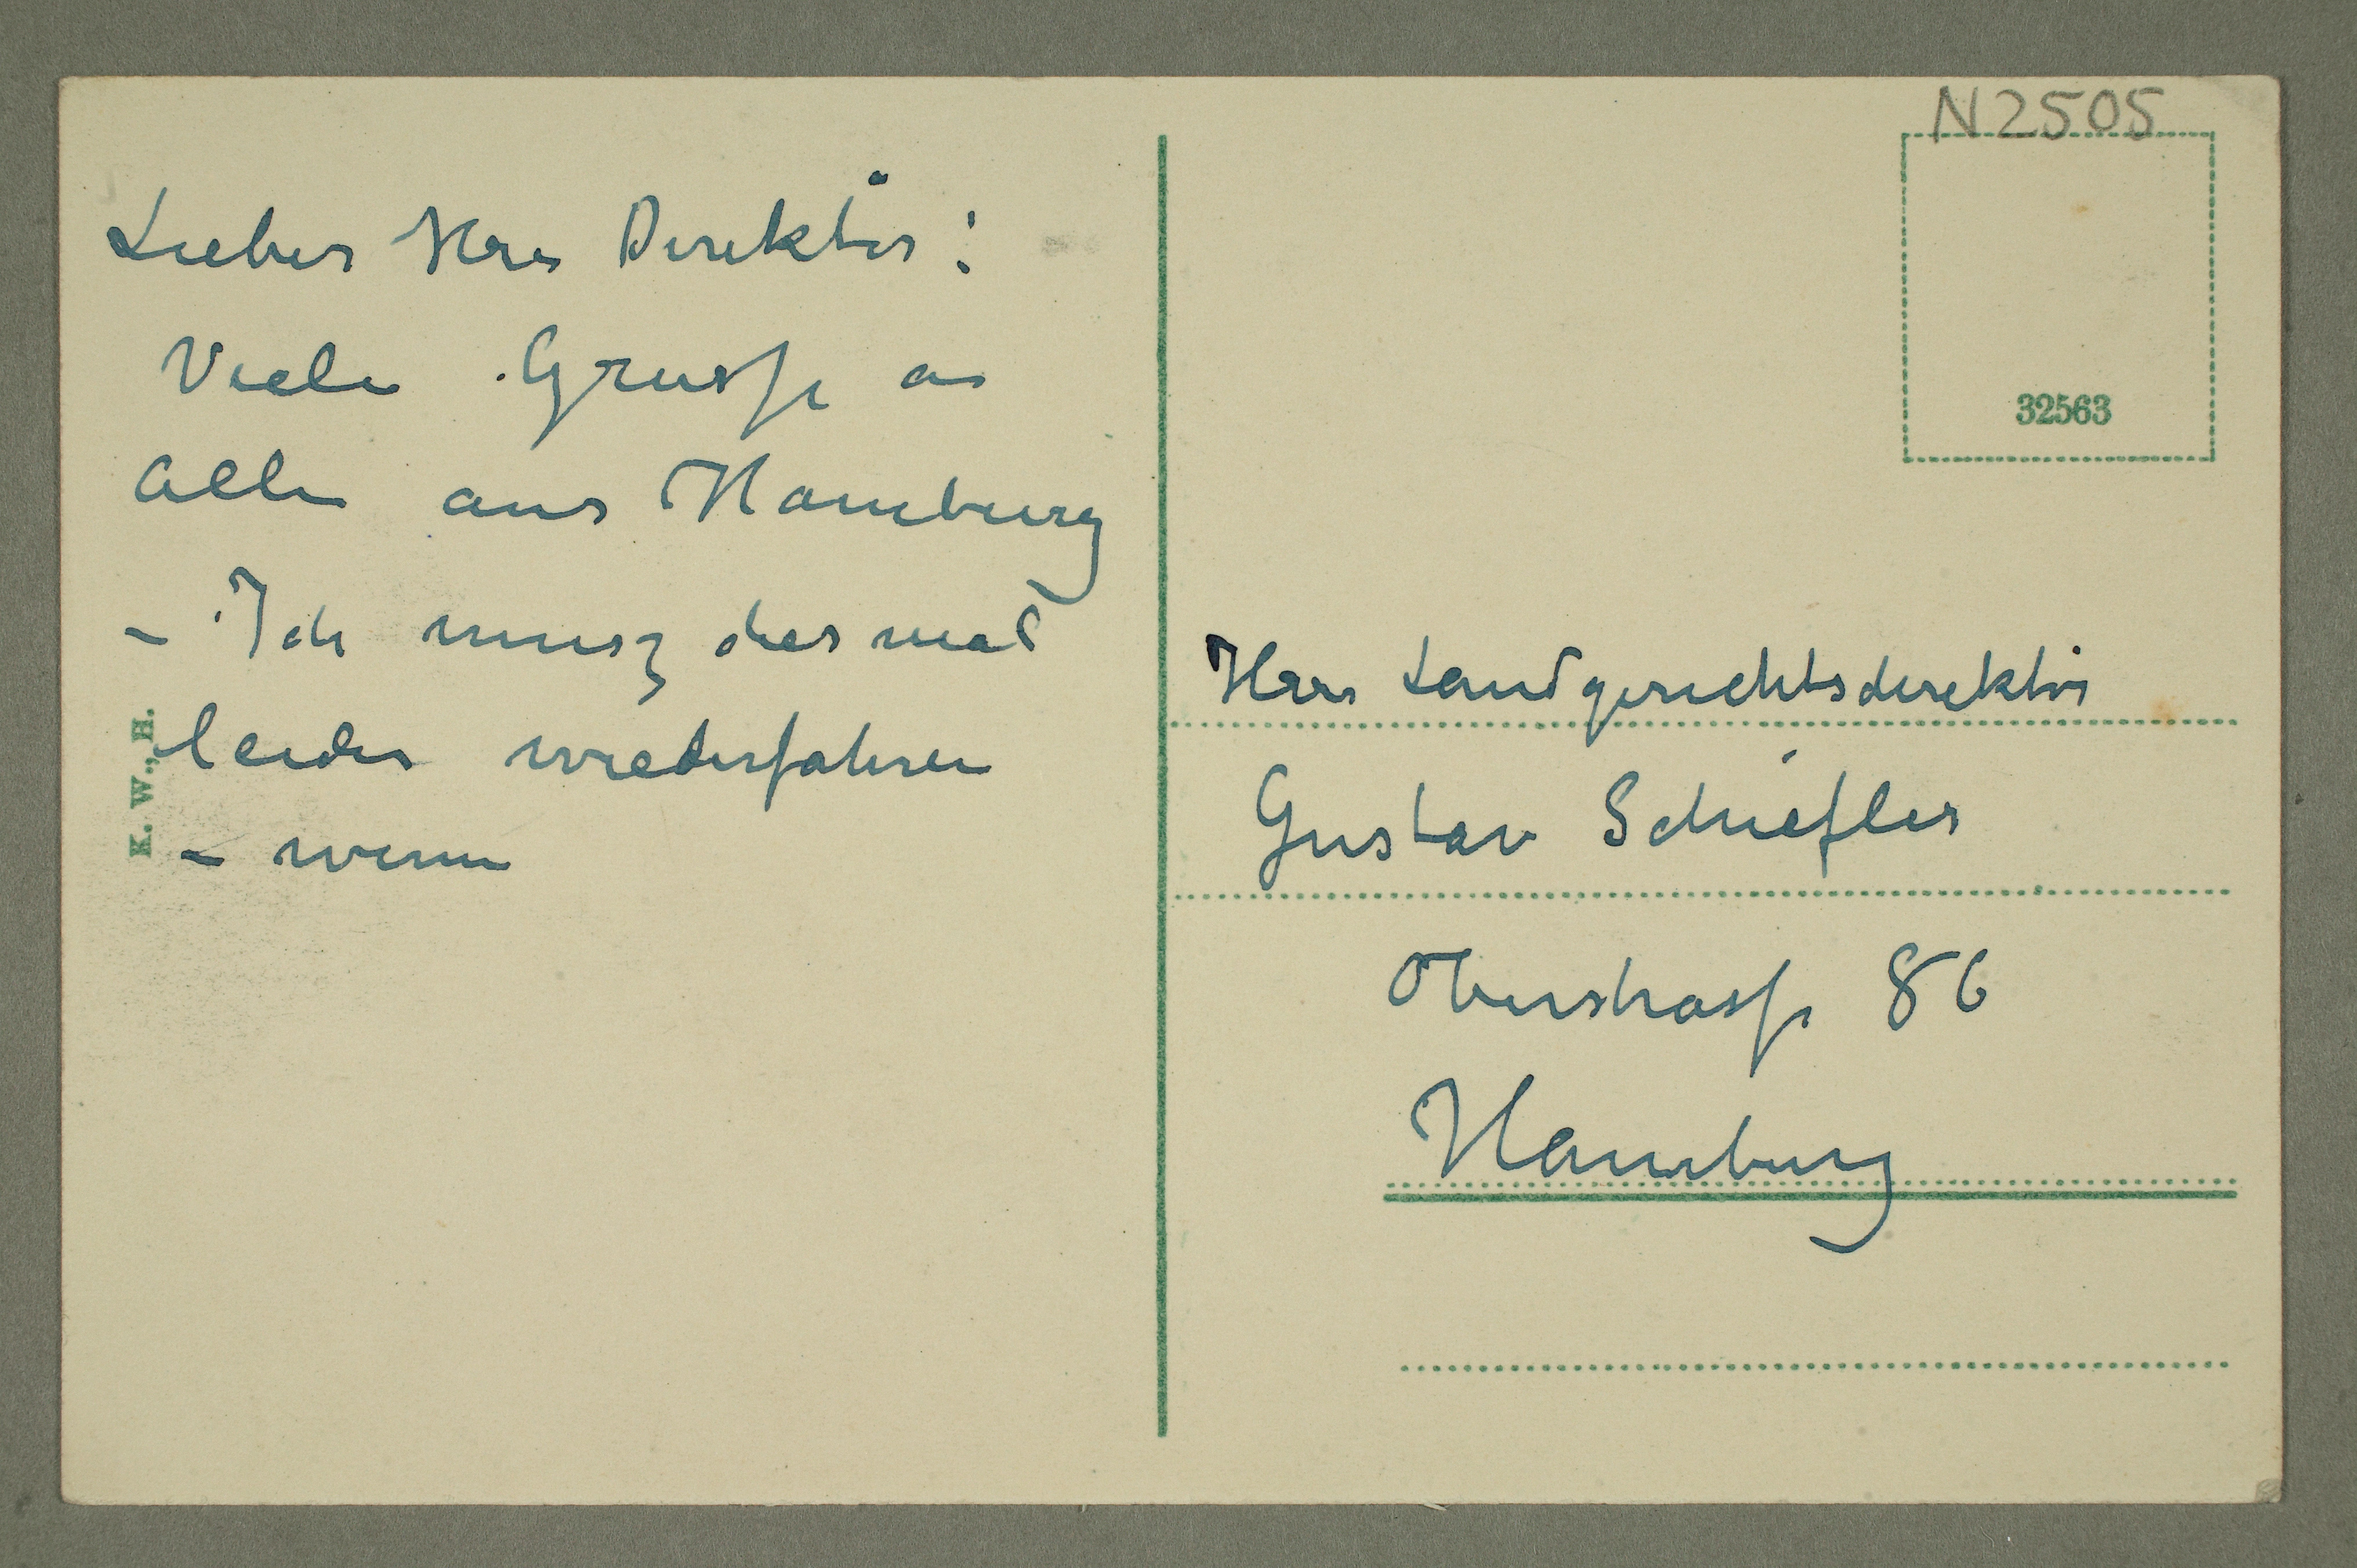 Lieber Herr Direktor!
Viele Grüsse an
Alle aus Hamburg
– Ich musz diesmal
leider wiederfahren
– wenn
K. W., H.
N 2505
32563
Herr Landgerichtsdirektor
Gustav Schiefler
Oberstrasse 86
Hamburg